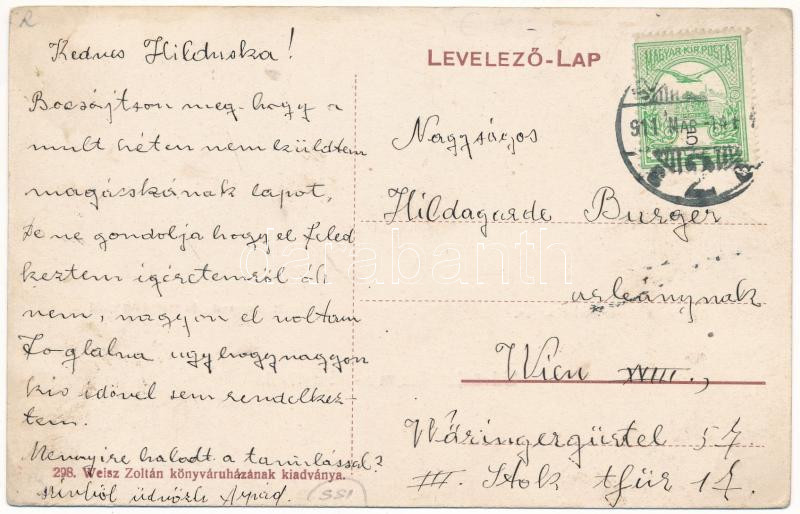 Kedves Hilduska!
Bocsájtson meg hogy a
mult héten nem küldtem
magácskának lapot,
de ne gondolja hogy el feled
keztem igéretemről óh
nem, nagyon el voltam
foglalva ugy hogy nagyon
kis idővel sem rendelkez-
tem.
Mennyire haladt a tanulással?
szivből üdvözli Árpád.
298. Weisz Zoltán könyváruházának kiadványa.
LEVELEZŐ-LAP
MAGYAR KIR. POSTA
911 MAR
Nagyságos
Hildagarde Burger
urleánynak
Wien XVIII.,
Wäringergürtel 57
III. Stok thür 17
darabanth
SS1
R